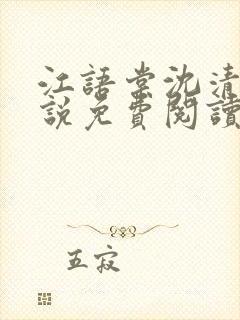 江語棠沈清
說免費閱讀
五寂